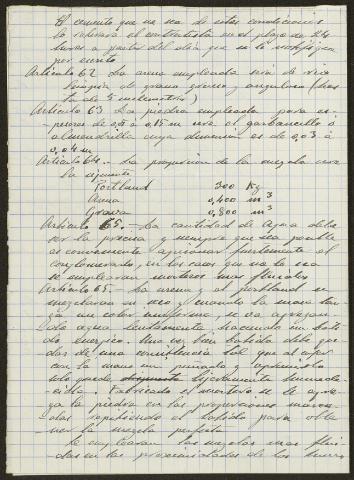 El cemento que no sea de estas condiciones
lo retirará el contratista en el plazo de 24
horas a partir del dia que se le notifique
por escrito
Articulo 62 La arena empleada será de rio
limpia de grano grueso y anguloso (has
ta de 5 milimetros)
Articulo 63 La piedra empleada para es-
pesores de 0,10 a 0,15 m será el garbancillo ó
almendrilla cuya dimension es de 0,03 á
0,04 m
Articulo 64.- La proporcion de la mezcla será
la siguiente
Portland 300 Kg
Arena 0,400 m3
Grava 0,800 m3
Articulo 65.- La cantidad de agua debe
ser la precisa y siempre que sea posible
es conveniente apisonar fuertemente el
conglomerado, en los casos que no lo sea
se emplearan, morteros mas fluidos
Articulo 65.- La arena y el portland se
mezclaran en seco y cuando la masa ten
ga un color uniforme se va agregan
do agua lentamente, haciendo un bati
do energico. Una vez bien batida debe que
dar de una consistencia tal que al coger
con la mano un puñado y
solo quede ligeramente humede-
cida. Fabricado el mortero se le agre
ga la piedra en las proporciones marca-
das repitiendo el batido para obte
ner la mezcla perfecta
Se emplearan las mezclas mas flui-
das en las proximidades de los hierros